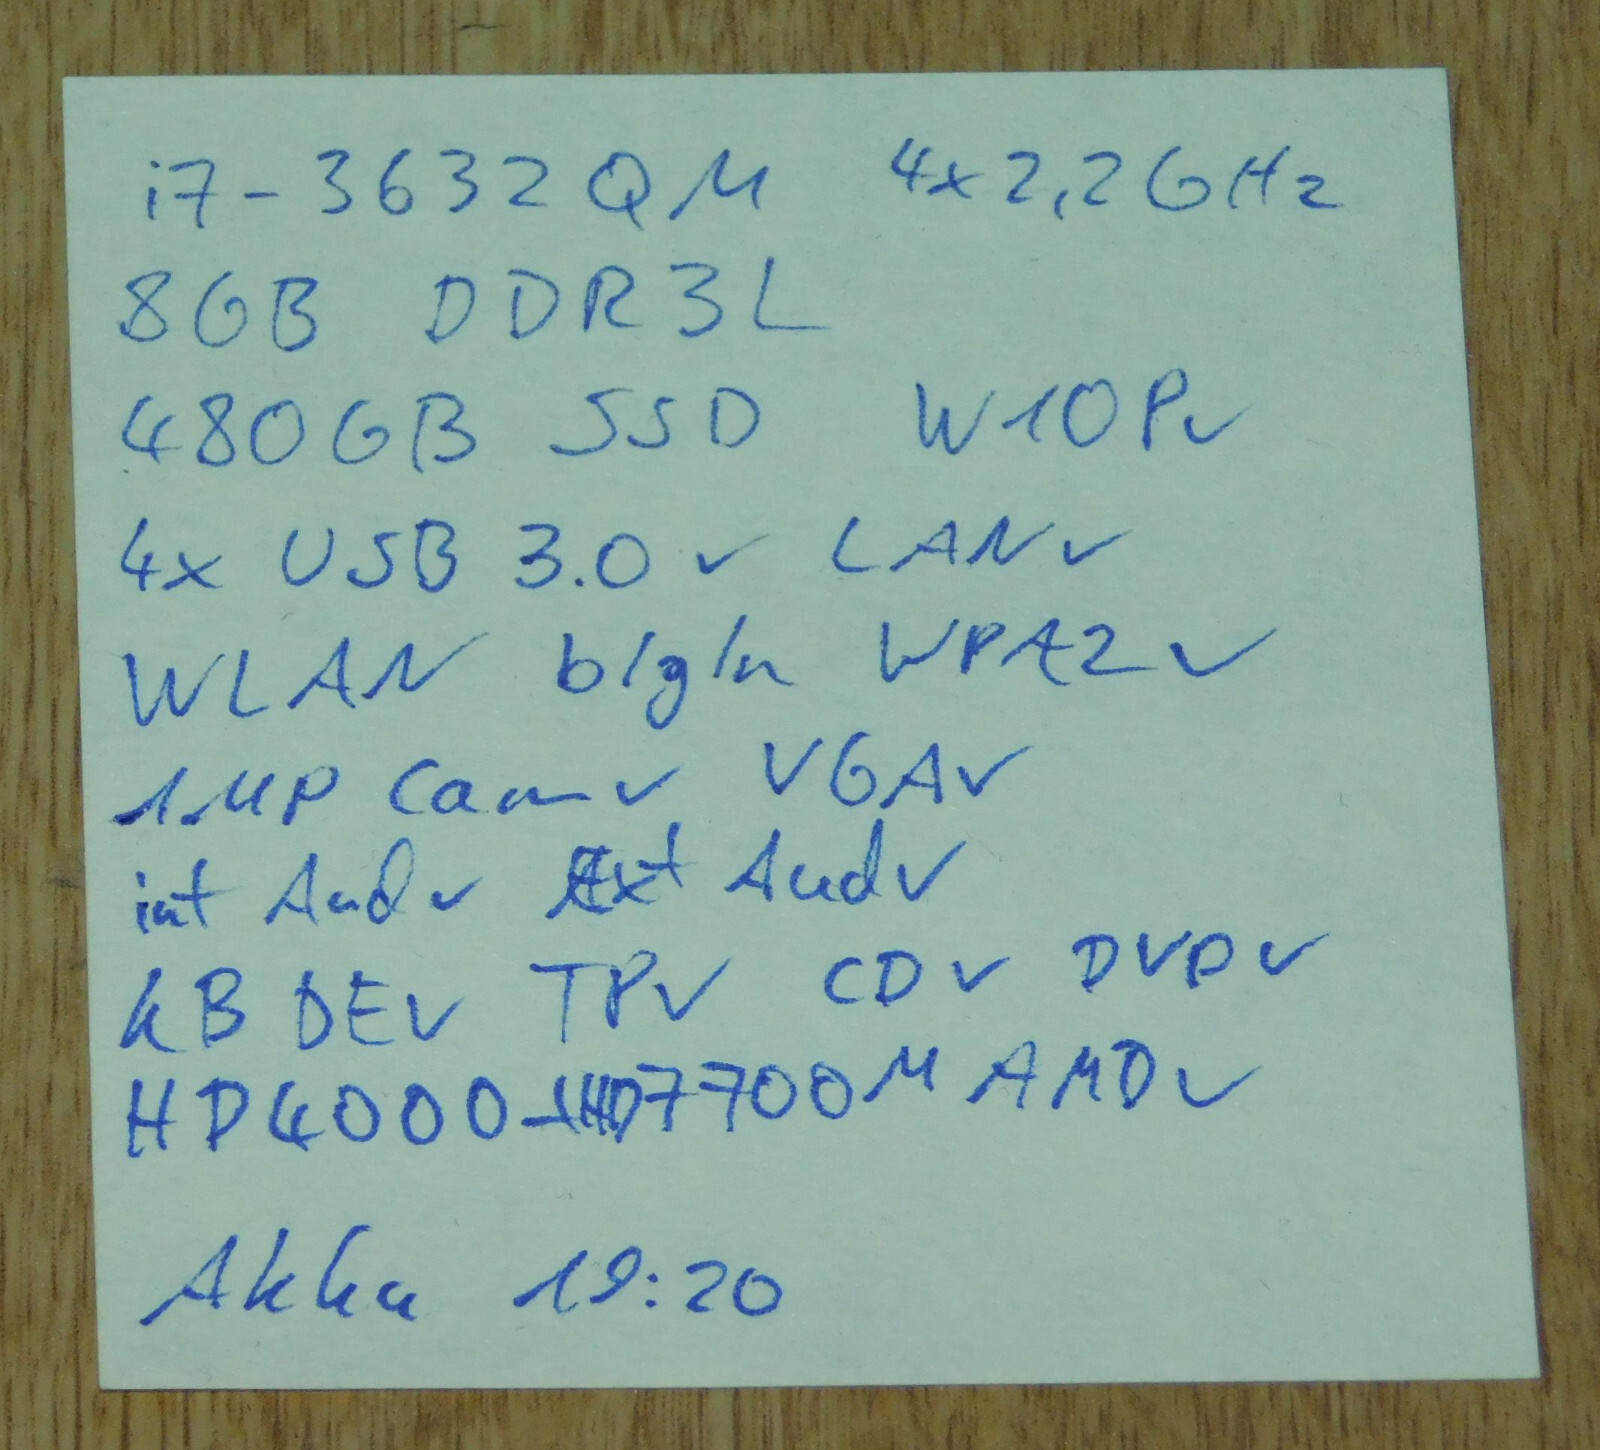 i7-3632QM 4x2,2GHz
8GB DDR3L
480GB SSD W10P✓
4x USB 3.0 ✓ LAN✓
WLAN b/g/n WPA2✓
1MP Cam✓ VGA✓
int Aud✓ Ext Aud✓
KB DE✓ TP✓ CD✓ DVD✓
HD4000 HD7700M AMD✓
Akku 19:20